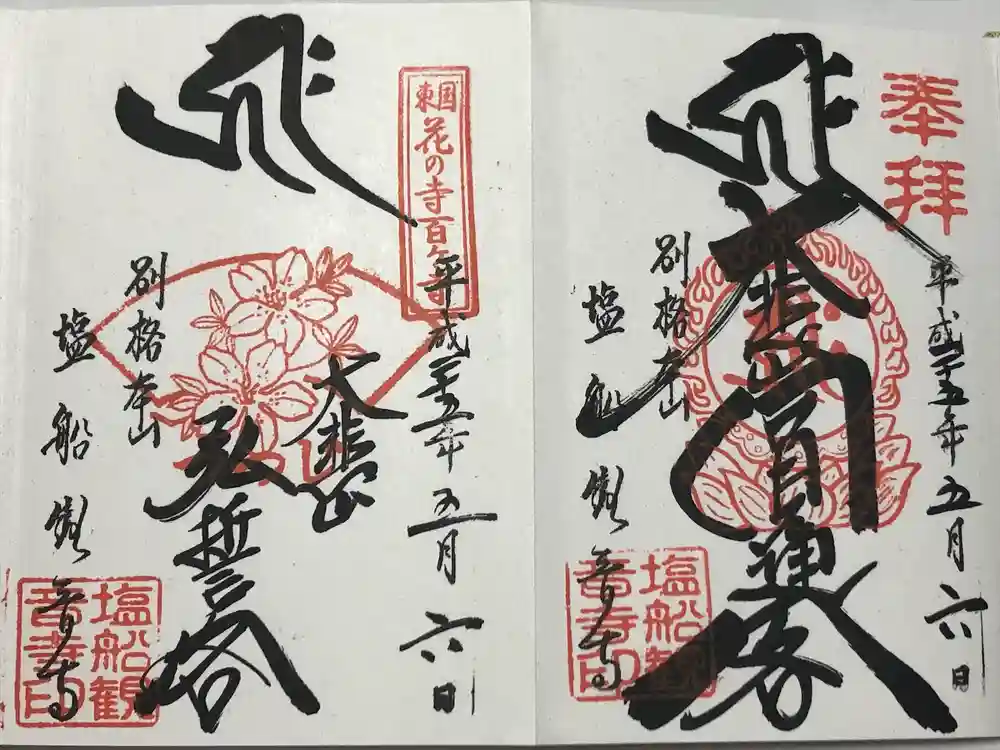 奉拝
平成二十五年五月六日
大悲圓通閣
別格本山
塩船観音寺
塩船観音寺印
東国花の寺百ヶ寺
平成二十五年五月六日
大悲
弘誓閣
別格本山
塩船観音寺
塩船観音寺印